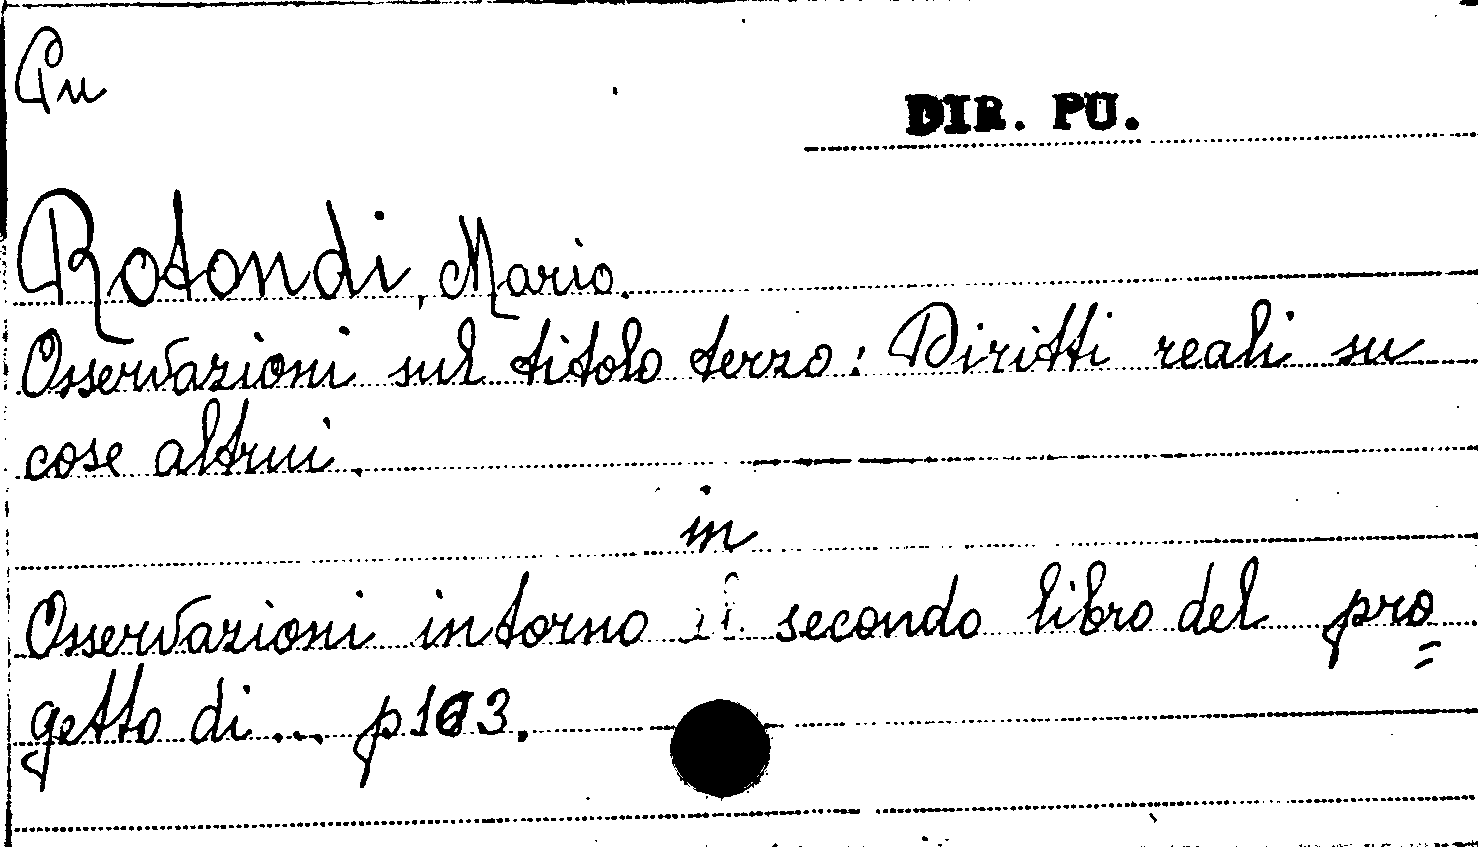 Pu
DIR. PU.
Rotondi, Mario.
Osservazioni sul titolo terzo: Diritti reali su
cose altrui.
in
Osservazioni intorno il secondo libro del pro=
getto di... p163.